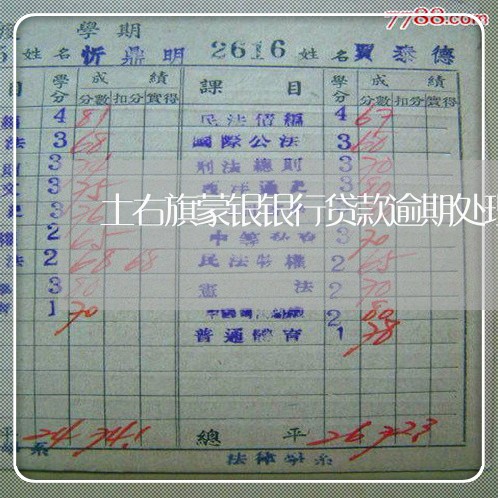 7788.com
學期
姓名 忻鼎明 2616 姓名 賈泰德
目 學分 成績 課目 學分 成績
分數 扣分 實得 分數 扣分 實得
4 81 民法債編 4 67
法 3 68 國際公法 3 60
3 刑法總則 3 70
3 75 西洋通史 3 80
土右旗蒙银银行贷款逾期处理
2 65 3 70
法 2 68 68 民法物權 2 65
3 80 憲法 2 70
1 70 2 80
普通體育 1 78
平 74.1 總平 26 72.3
系 法律學系